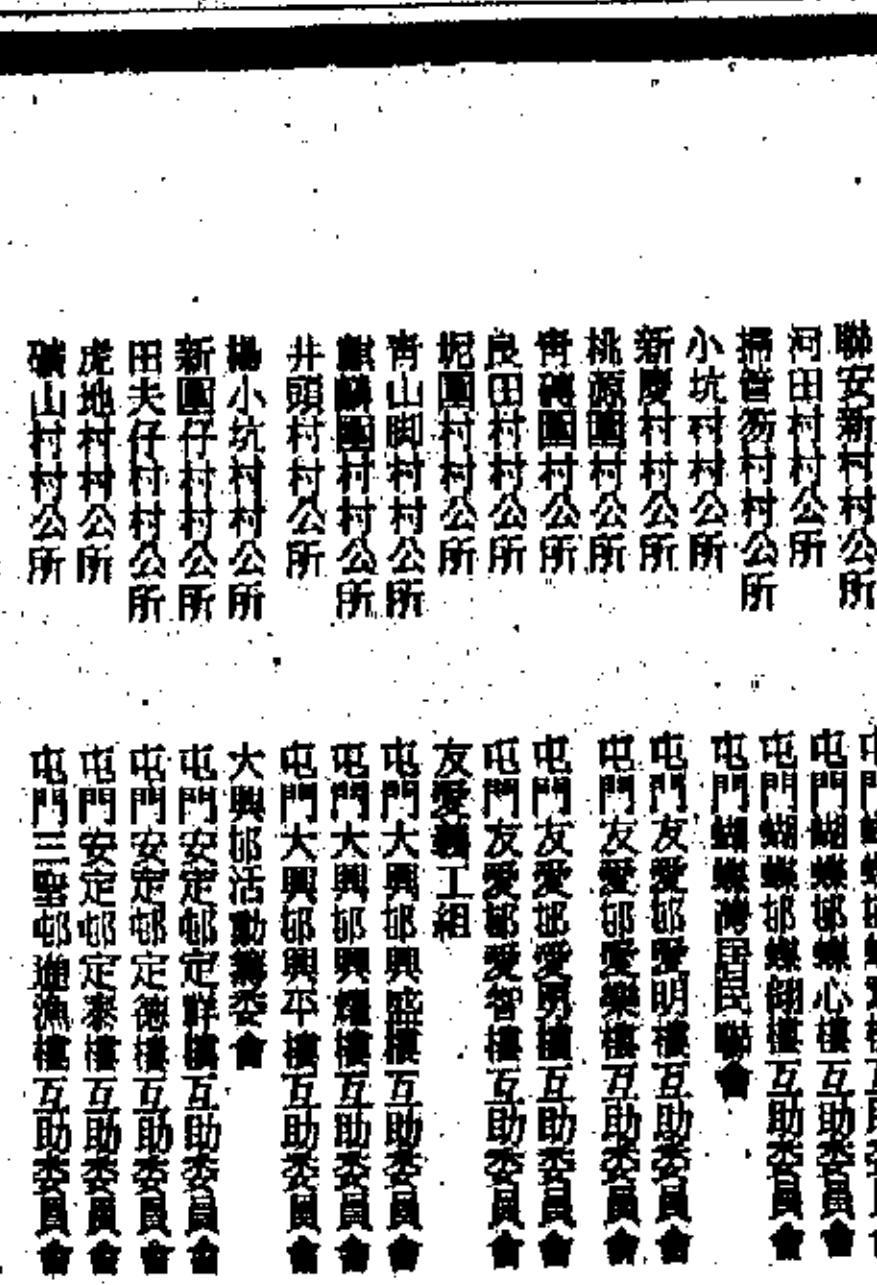 聯安新村村公所
河田村村公所
掃管笏村村公所
小坑村村公所
新慶村村公所
桃源圍村公所
青磚圍村公所
良田村村公所
坭圍村村公所
青山脚村村公所
麒麟圍村村公所
井頭村村公所
楊小坑村村公所
新圍仔村村公所
田夫仔村村公所
虎地村村公所
礦山村村公所
屯門蝴蝶邨蝶心樓互助委員會
屯門蝴蝶邨蝶翎樓互助委員會
屯門蝴蝶灣居民聯會
屯門友愛邨愛明樓互助委員會
屯門友愛邨愛樂樓互助委員會
屯門友愛邨愛勇樓互助委員會
屯門友愛邨愛智樓互助委員會
友愛義工組
屯門大興邨興盛樓互助委員會
屯門大興邨興耀樓互助委員會
屯門大興邨興平樓互助委員會
大興邨活動籌委會
屯門安定邨定祥樓互助委員會
屯門安定邨定德樓互助委員會
屯門安定邨定泰樓互助委員會
屯門三聖邨進漁樓互助委員會